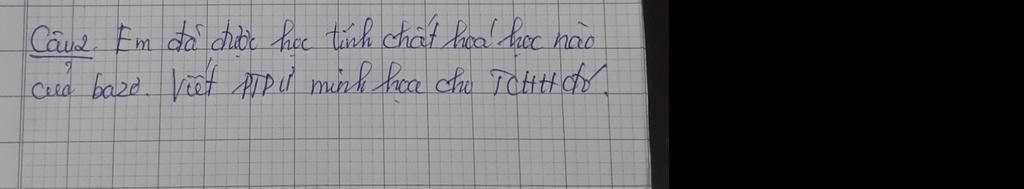 Câu 2. Em đã được học tính chất hoá học nào
của bazơ. Viết PTPƯ minh họa cho TCHH đó.